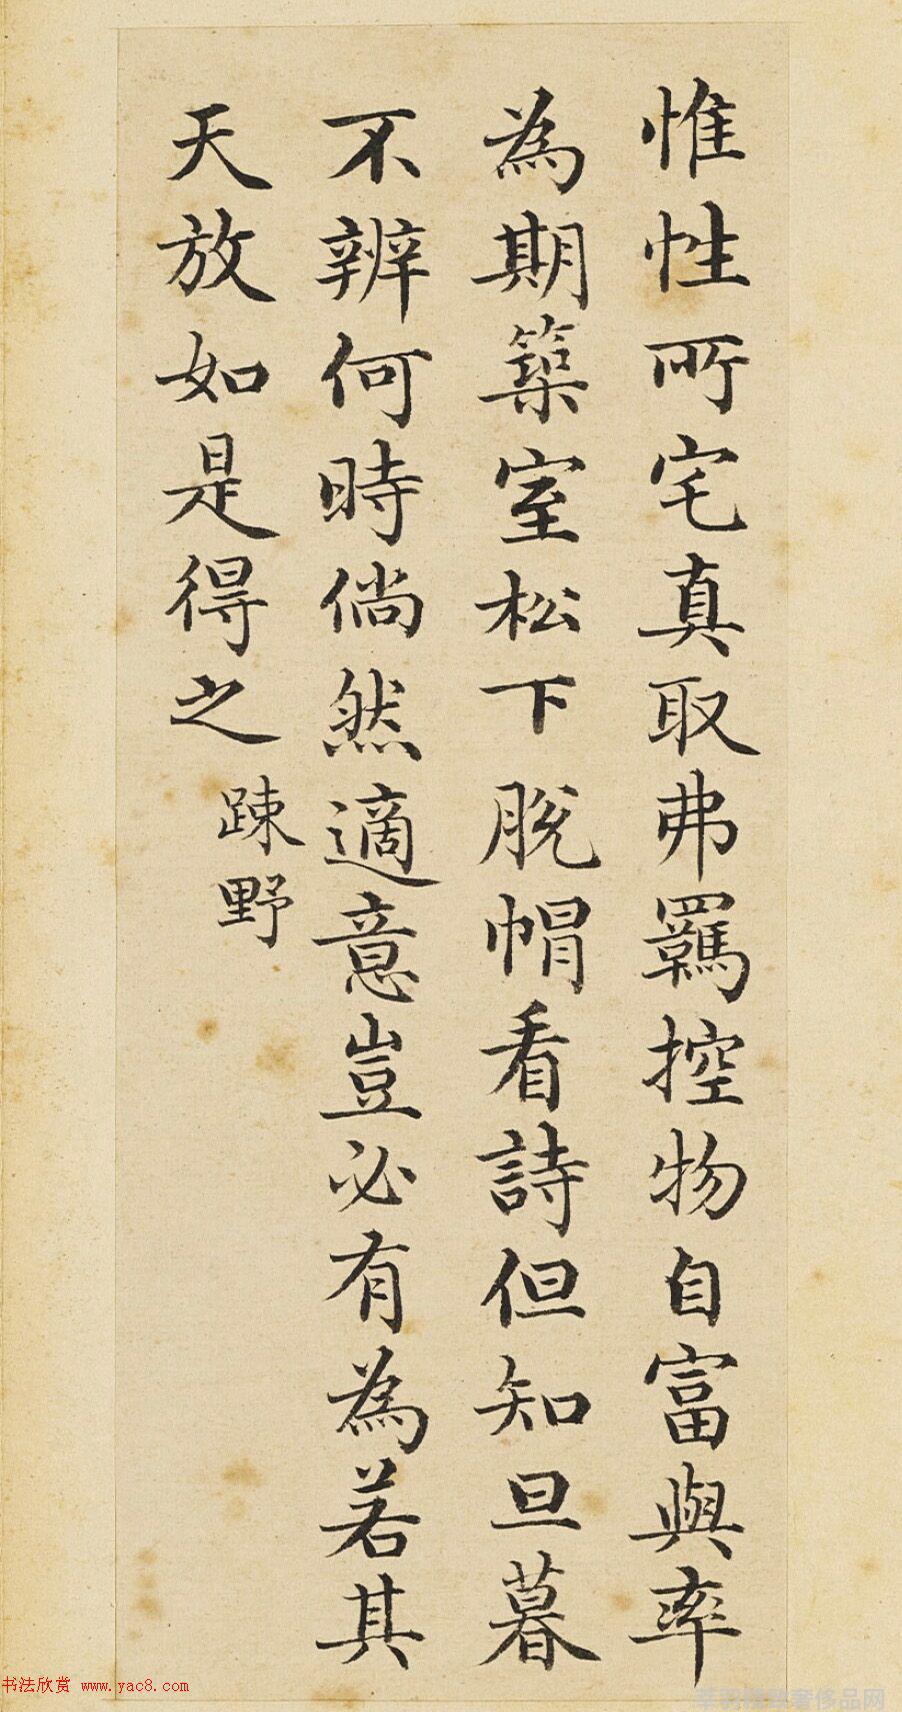 惟性所宅真取弗羈控物自富與率
為期築室松下脫帽看詩但知旦暮
不辨何時倘然適意豈必有為若其
天放如是得之
疎野
书法欣赏 www.yac8.com
奢侈品网